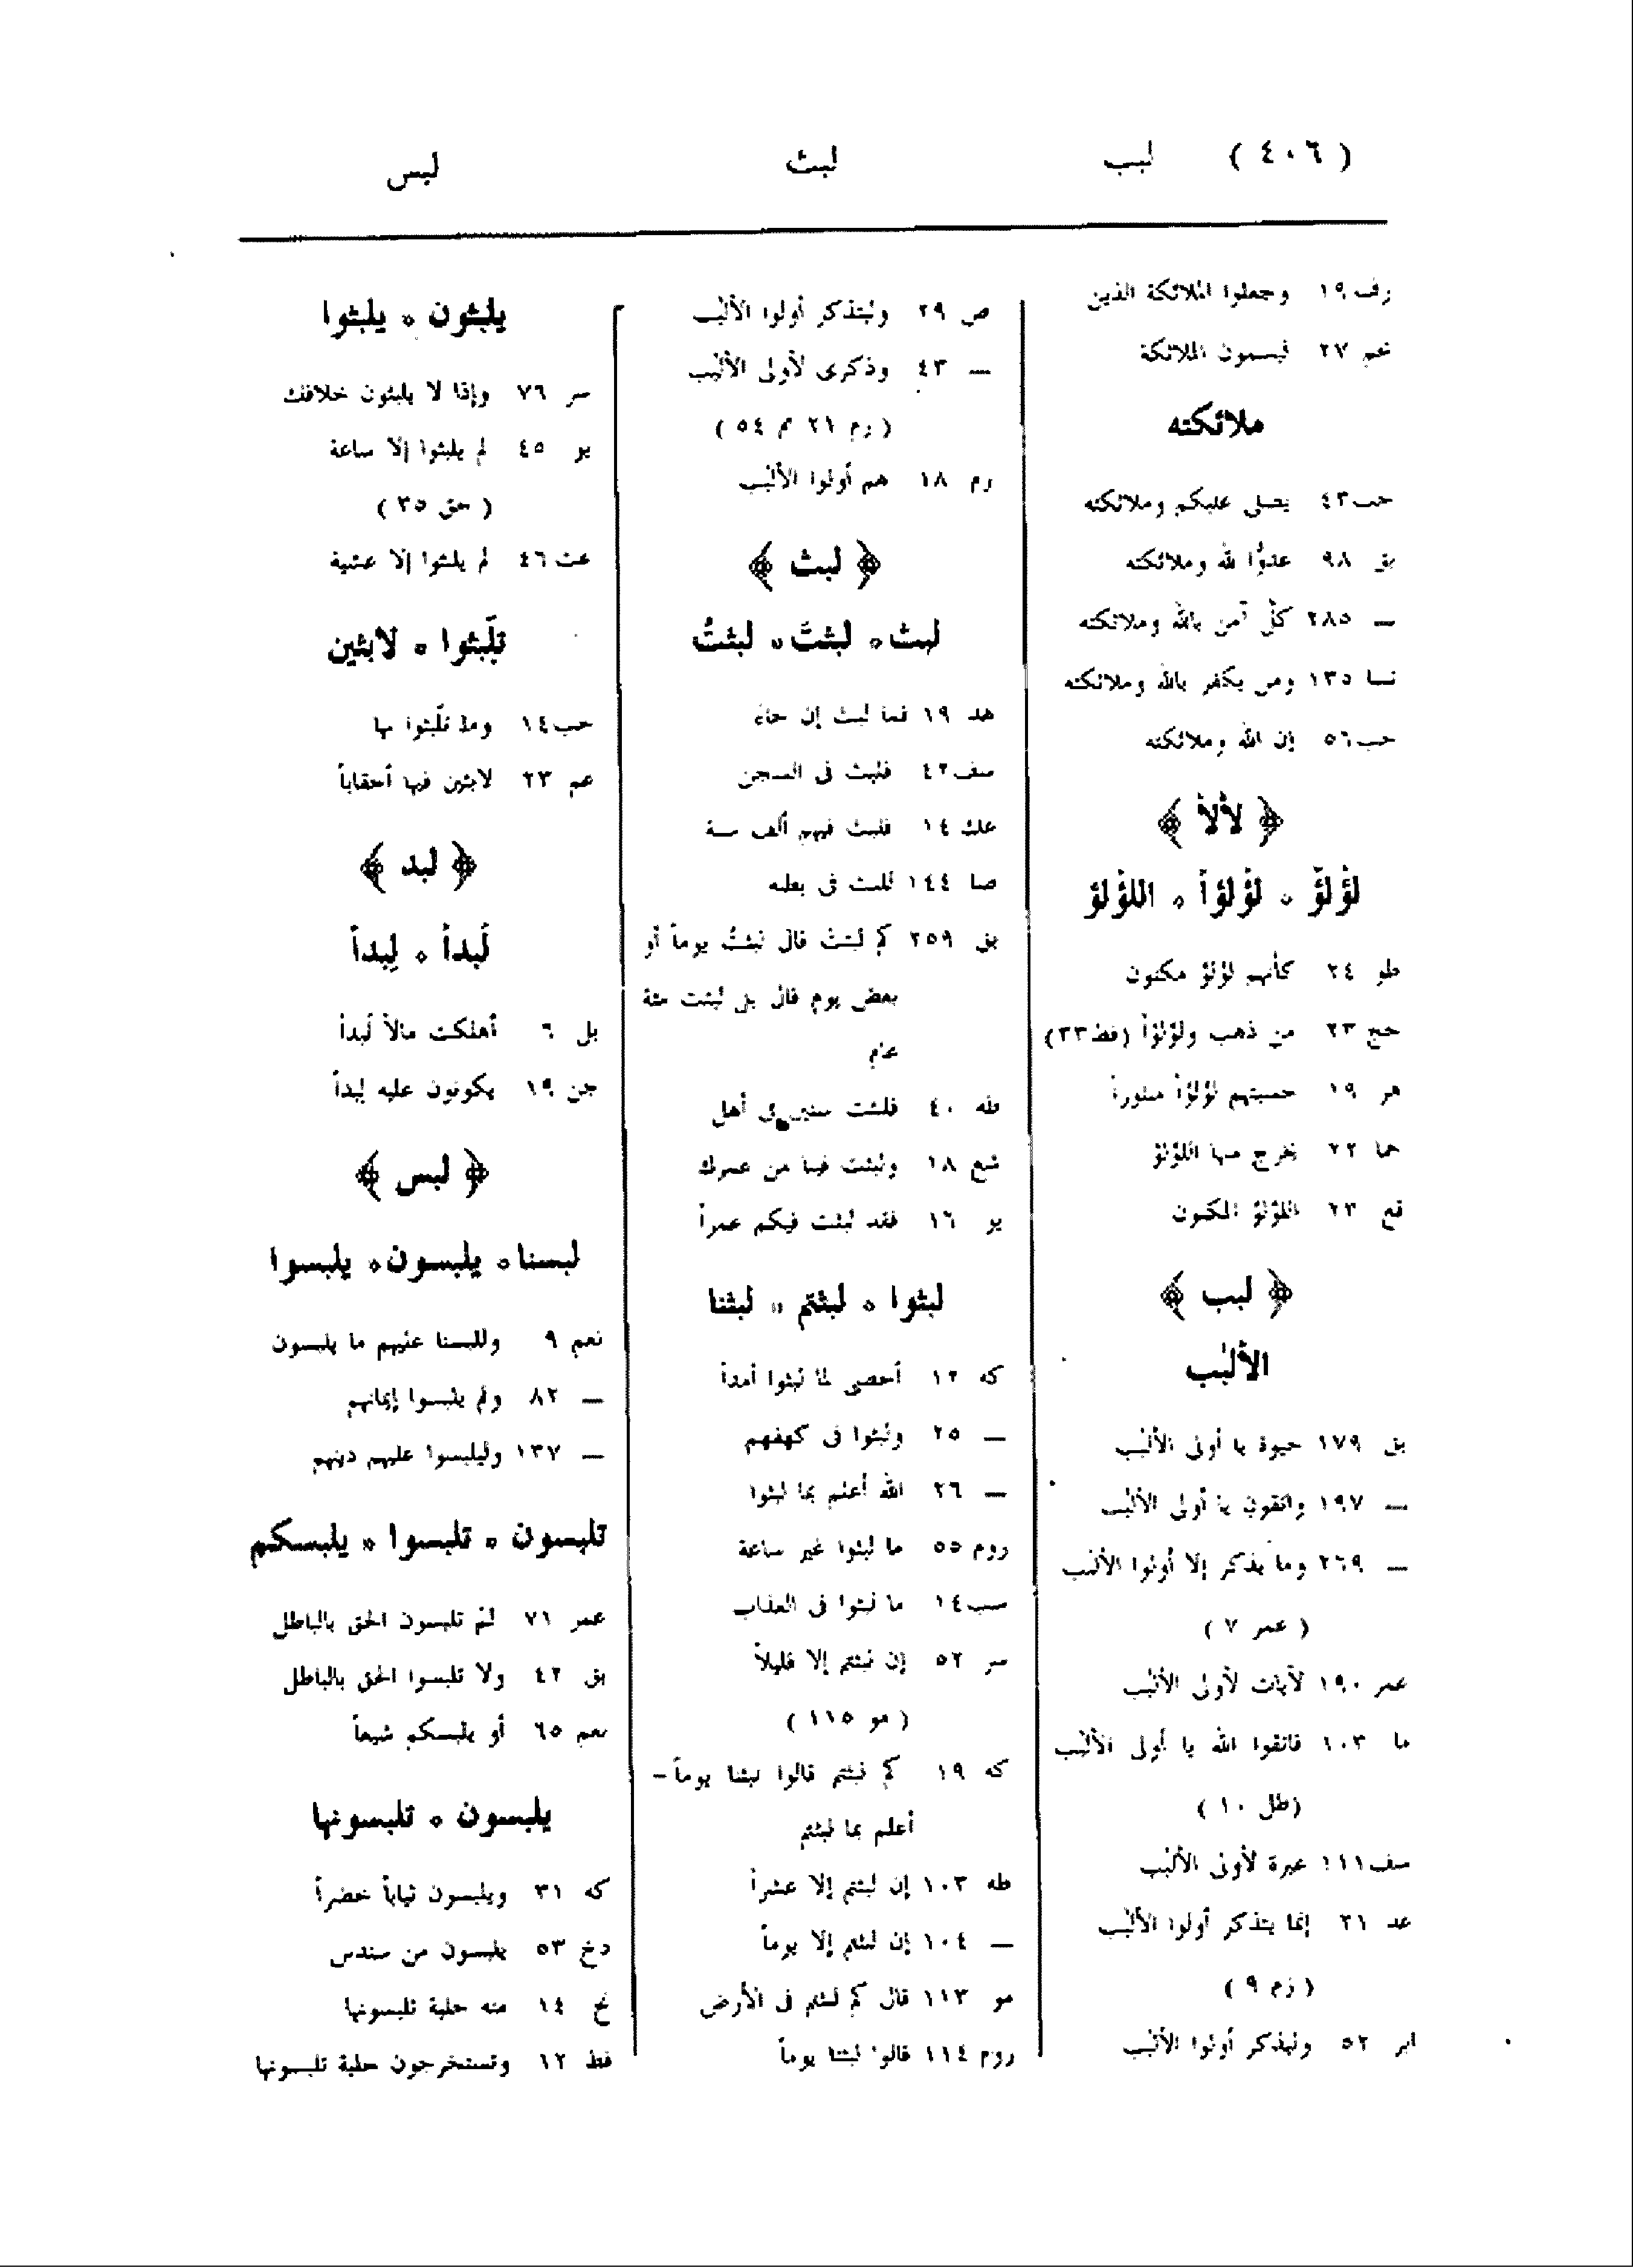 ( ٤٠٦ ) لبب لبث لبس
رف ١٩ وجعلوا الملائكة الذين
نجم ٢٧ ليسمون الملائكة
ملائكته
حب ٤٣ يصلى عليكم وملائكته
بق ٩٨ عدوًّا لله وملائكته
— ٢٨٥ كلٌّ آمن بالله وملائكته
نسا ١٣٥ ومن يكفر بالله وملائكته
حب ٥٦ إن الله وملائكته
﴿ لألأ ﴾
لؤلؤ ٥ لؤلؤاً ٥ اللؤلؤ
طو ٢٤ كأنهم لؤلؤ مكنون
حج ٢٣ من ذهب ولؤلؤاً (فط ٣٣)
هر ١٩ حسبتهم لؤلؤاً منثوراً
حما ٢٢ يخرج منها اللؤلؤ
قع ٢٣ اللؤلؤ المكنون
﴿ لبب ﴾
الألبٰب
بق ١٧٩ حيوة يا أولى الألبٰب
— ١٩٧ واتقون يا أولى الألبٰب
— ٢٦٩ وما يذكر إلا أولوا الألبٰب
( عمر ٧ )
عمر ١٩٠ لآيات لأولى الألبٰب
ما ١٠٣ فاتقوا الله يا أولى الألبٰب
(طل ١٠ )
سف ١١١ عبرة لأولى الألبٰب
عد ٢١ إنما يتذكر أولوا الألبٰب
( زم ٩ )
ابر ٥٢ وليذكر أولوا الألبٰب
ص ٢٩ وليتذكر أولوا الألبٰب
— ٤٣ وذكرى لأولى الألبٰب
( زم ٢١ م ٥٤ )
زم ١٨ هم أولوا الألبٰب
﴿ لبث ﴾
لبث ٥ لبثتَ ٥ لبثتُ
هد ٦٩ فما لبث إن جاء
سف ٤٢ فلبث فى السجن
عك ١٤ فلبث فيهم ألف سنة
صا ١٤٤ للبث فى بطنه
بق ٢٥٩ كم لبثتَ قال لبثتُ يوماً أو
بعض يوم قال بل لبثت مئة
عام
طه ٤٠ فلبثت سنين فى أهل
شع ١٨ ولبثت فينا من عمرك
يو ١٦ فقد لبثت فيكم عمراً
لبثوا ٥ لبثتم ٥ لبثنا
كه ١٢ أحصى لما لبثوا أمداً
— ٢٥ ولبثوا فى كهفهم
— ٢٦ الله أعلم بما لبثوا
روم ٥٥ ما لبثوا غير ساعة
سب ١٤ ما لبثوا فى العذاب
سر ٥٢ إن لبثتم إلا قليلاً
( مو ١١٥ )
كه ١٩ كم لبثتم قالوا لبثنا يوماً –
أعلم بما لبثتم
طه ١٠٣ إن لبثتم إلا عشراً
— ١٠٤ إن لبثتم إلا يوماً
مو ١١٣ قال كم لبثتم فى الأرض
روم ١١٤ قالوا لبثنا يوماً
يلبثون ٥ يلبثوا
سر ٧٦ وإذا لا يلبثون خلافك
يو ٤٥ لم يلبثوا إلا ساعة
( حق ٣٥ )
عت ٤٦ لم يلبثوا إلا عشية
تلّبثوا ٥ لابثين
حب ١٤ وما تلّبثوا بها
عم ٢٣ لابثين فيها أحقاباً
﴿ لبد ﴾
لُبداً ٥ لِبداً
بل ٦ أهلكت مالاً لُبداً
جن ١٩ يكونون عليه لِبداً
﴿ لبس ﴾
لبسنا ٥ يلبسون ٥ يلبسوا
نعم ٩ وللبسنا عليهم ما يلبسون
— ٨٢ ولم يلبسوا إيمانهم
— ١٣٧ وليلبسوا عليهم دينهم
تلبسون ٥ تلبسوا ٥ يلبسكم
عمر ٧١ لم تلبسون الحق بالباطل
بق ٤٢ ولا تلبسوا الحق بالباطل
نعم ٦٥ أو يلبسكم شيعاً
يلبسون ٥ تلبسونها
كه ٣١ ويلبسون ثياباً خضراً
دخ ٥٣ يلبسون من سندس
نح ١٤ منه حلية تلبسونها
فط ١٢ وتستخرجون حلية تلبسونها